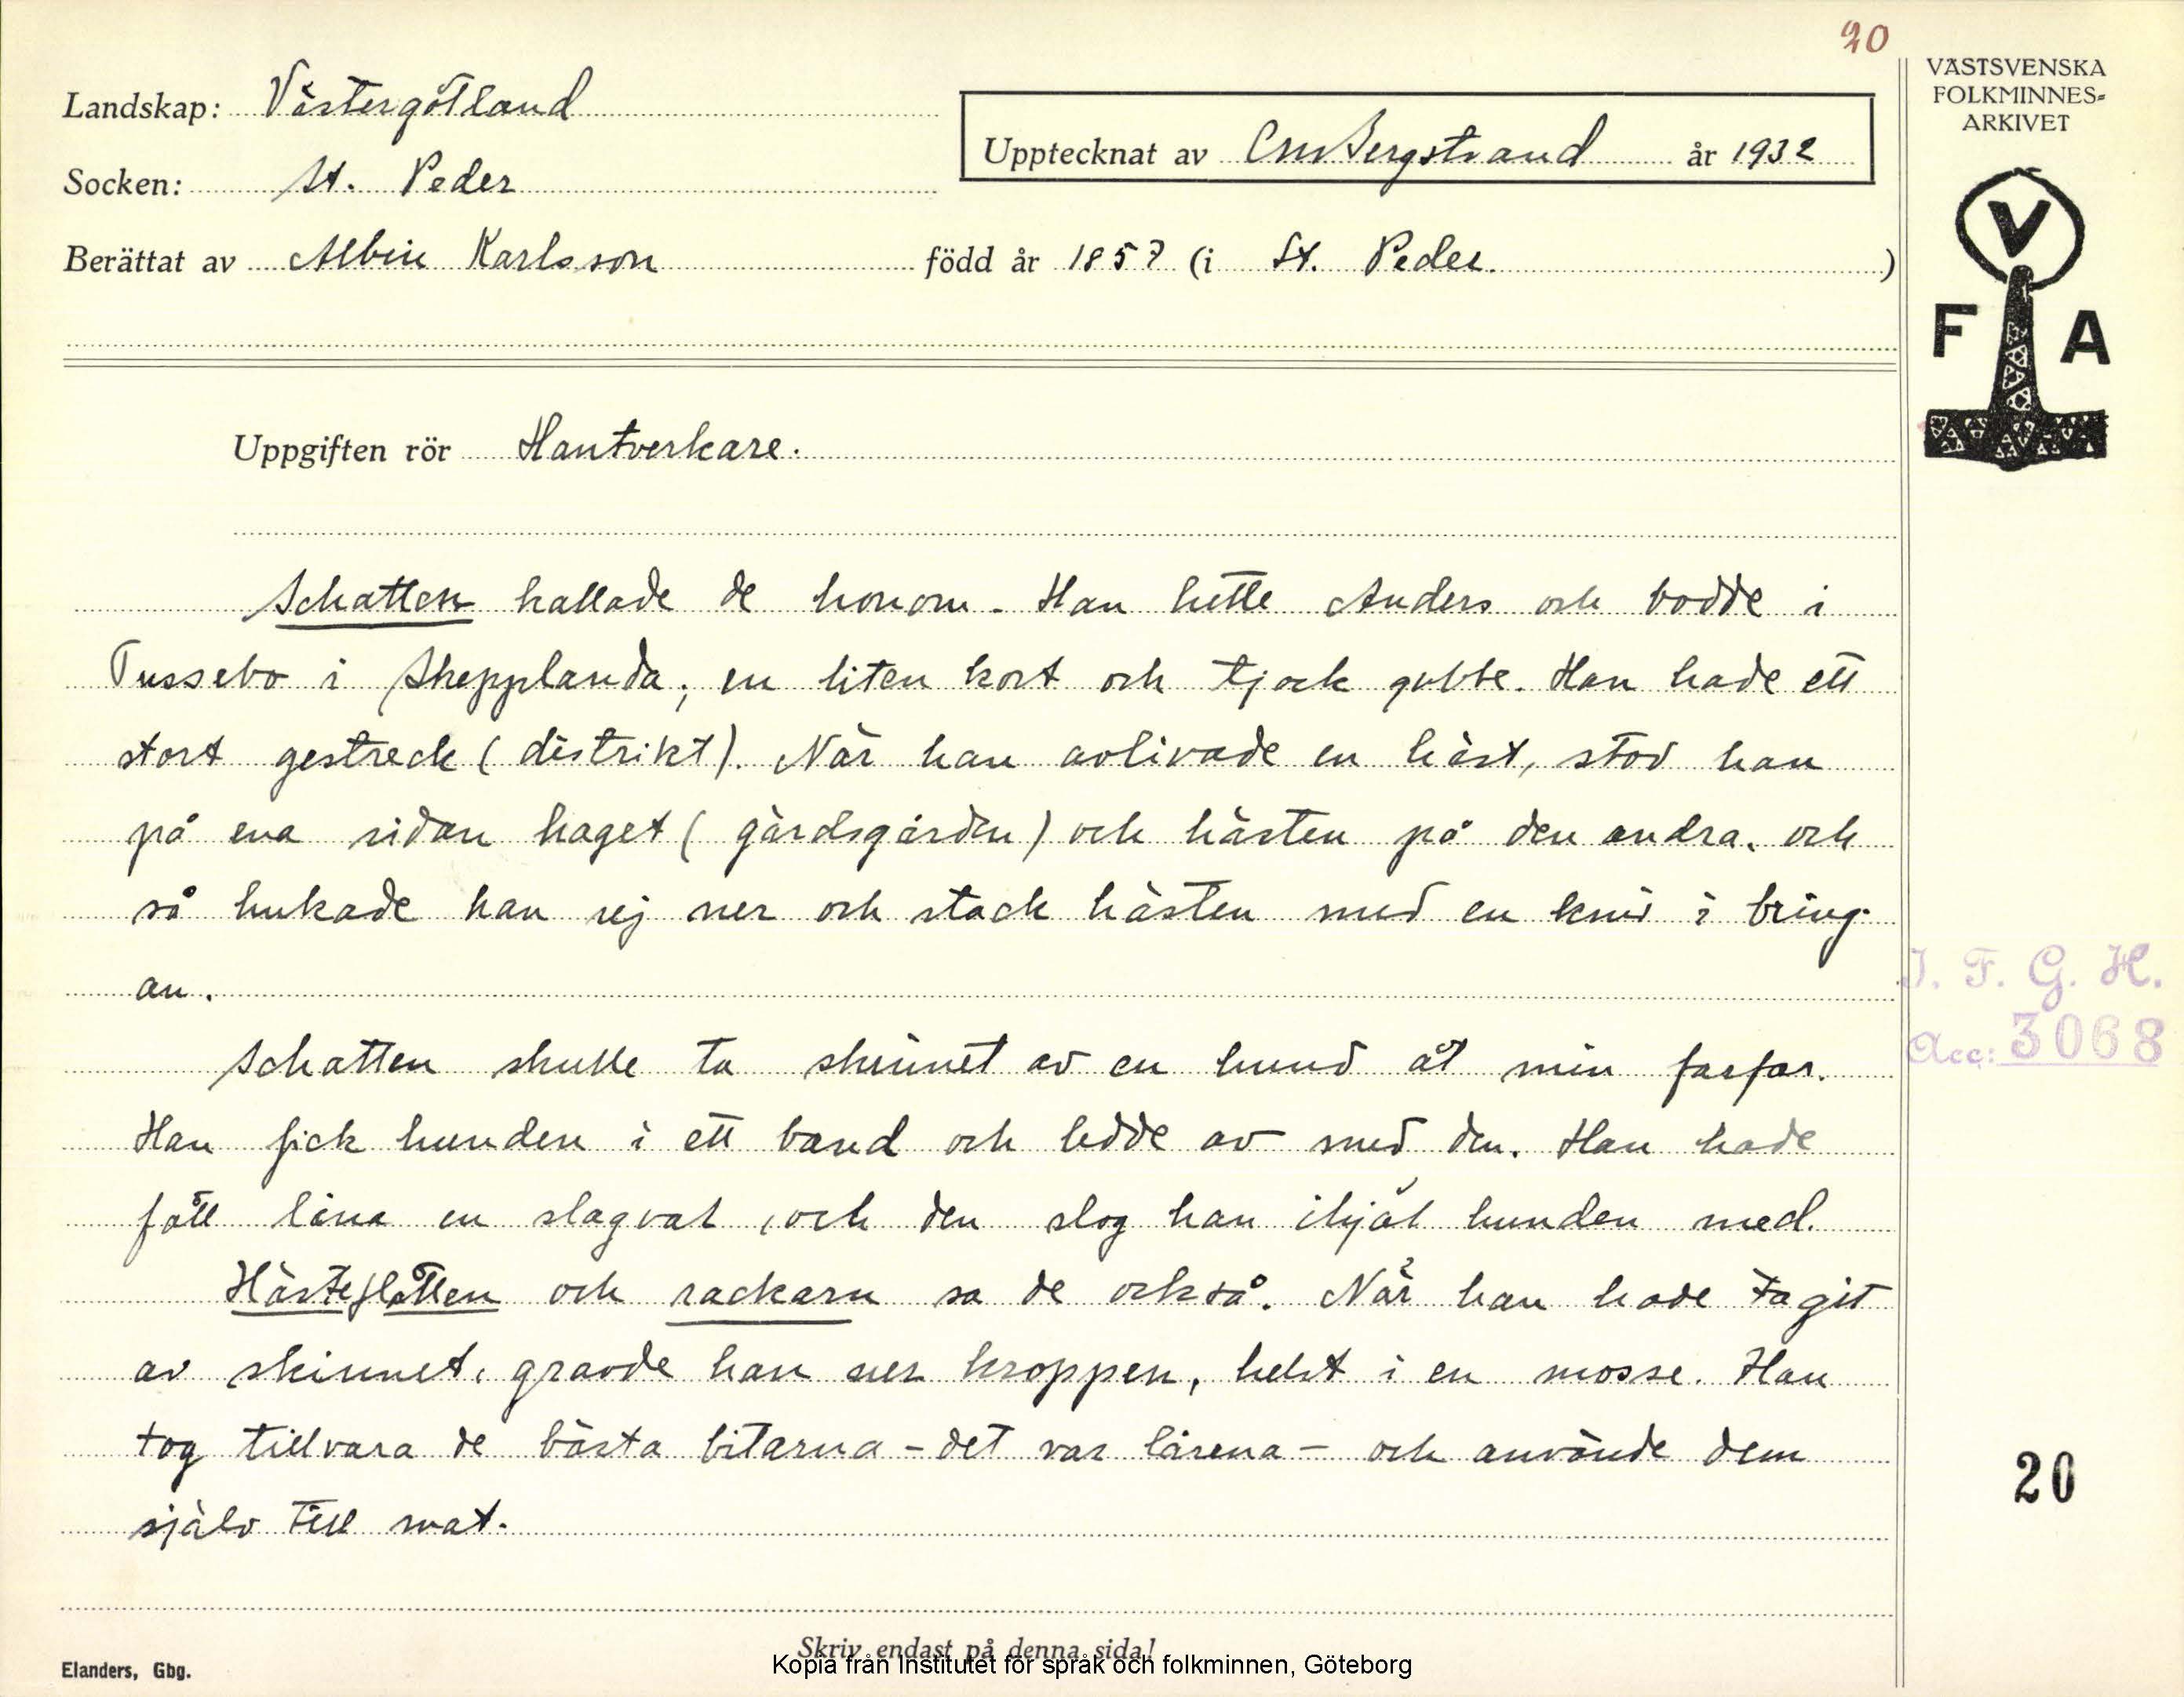 20
VÄSTSVENSKA
FOLKMINNES-
ARKIVET
Landskap: Västergötland
Upptecknat av CM Bergstrand år 1932
Socken: St. Peder
Berättat av Albin Karlsson född år 1857 (i St. Peder.)
V
F A
Uppgiften rör Hantverkare.
Schatten kallade de honom. Han hette Anders och bodde i
Tussebo i Skepplanda; en liten kort och tjock gubbe. Han hade ett
stort gestreck (distrikt). När han avlivade en häst, stod han
på ena sidan haget (gärdsgården) och hästen på den andra, och
så hukade han sej ner och stack hästen med en kniv i bring-
an.
Schatten skulle ta skinnet av en hund åt min farfar.
Han fick hunden i ett band och ledde av med den. Han hade
fått låna en slagval, och den slog han ihjäl hunden med.
Hästeflåtten och rackarn sa de också. När han hade tagit
av skinnet, gravde han ner kroppen, helst i en mosse. Han
tog tillvara de bästa bitarna - det var lårena - och använde dem
själv till mat.
I. F. G. H.
Acc: 3068
20
Skriv endast på denna sida!
Elanders, Gbg.
Kopia från Institutet för språk och folkminnen, Göteborg